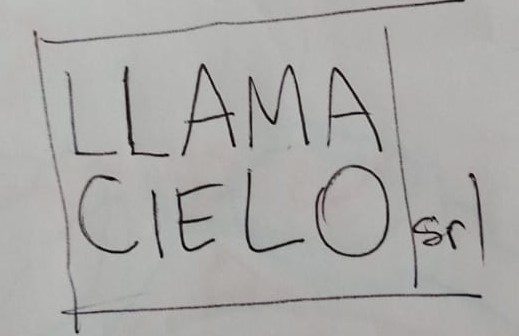 LLAMA
CIELO srl